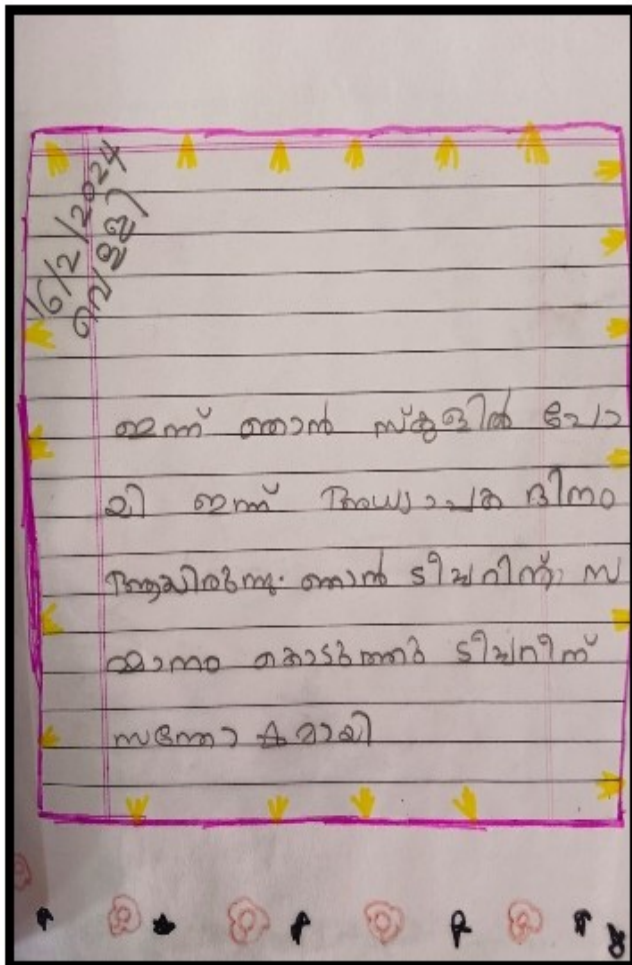 16/2/2024
വെള്ളി
ഇന്ന് ഞാൻ സ്കൂളിൽ പോ
യി ഇന്ന് അധ്യാപക ദിനം
ആയിരുന്നു. ഞാൻ ടീച്ചറിന് സ
മ്മാനം കൊടുത്തു ടീച്ചറിന്
സന്തോഷമായി